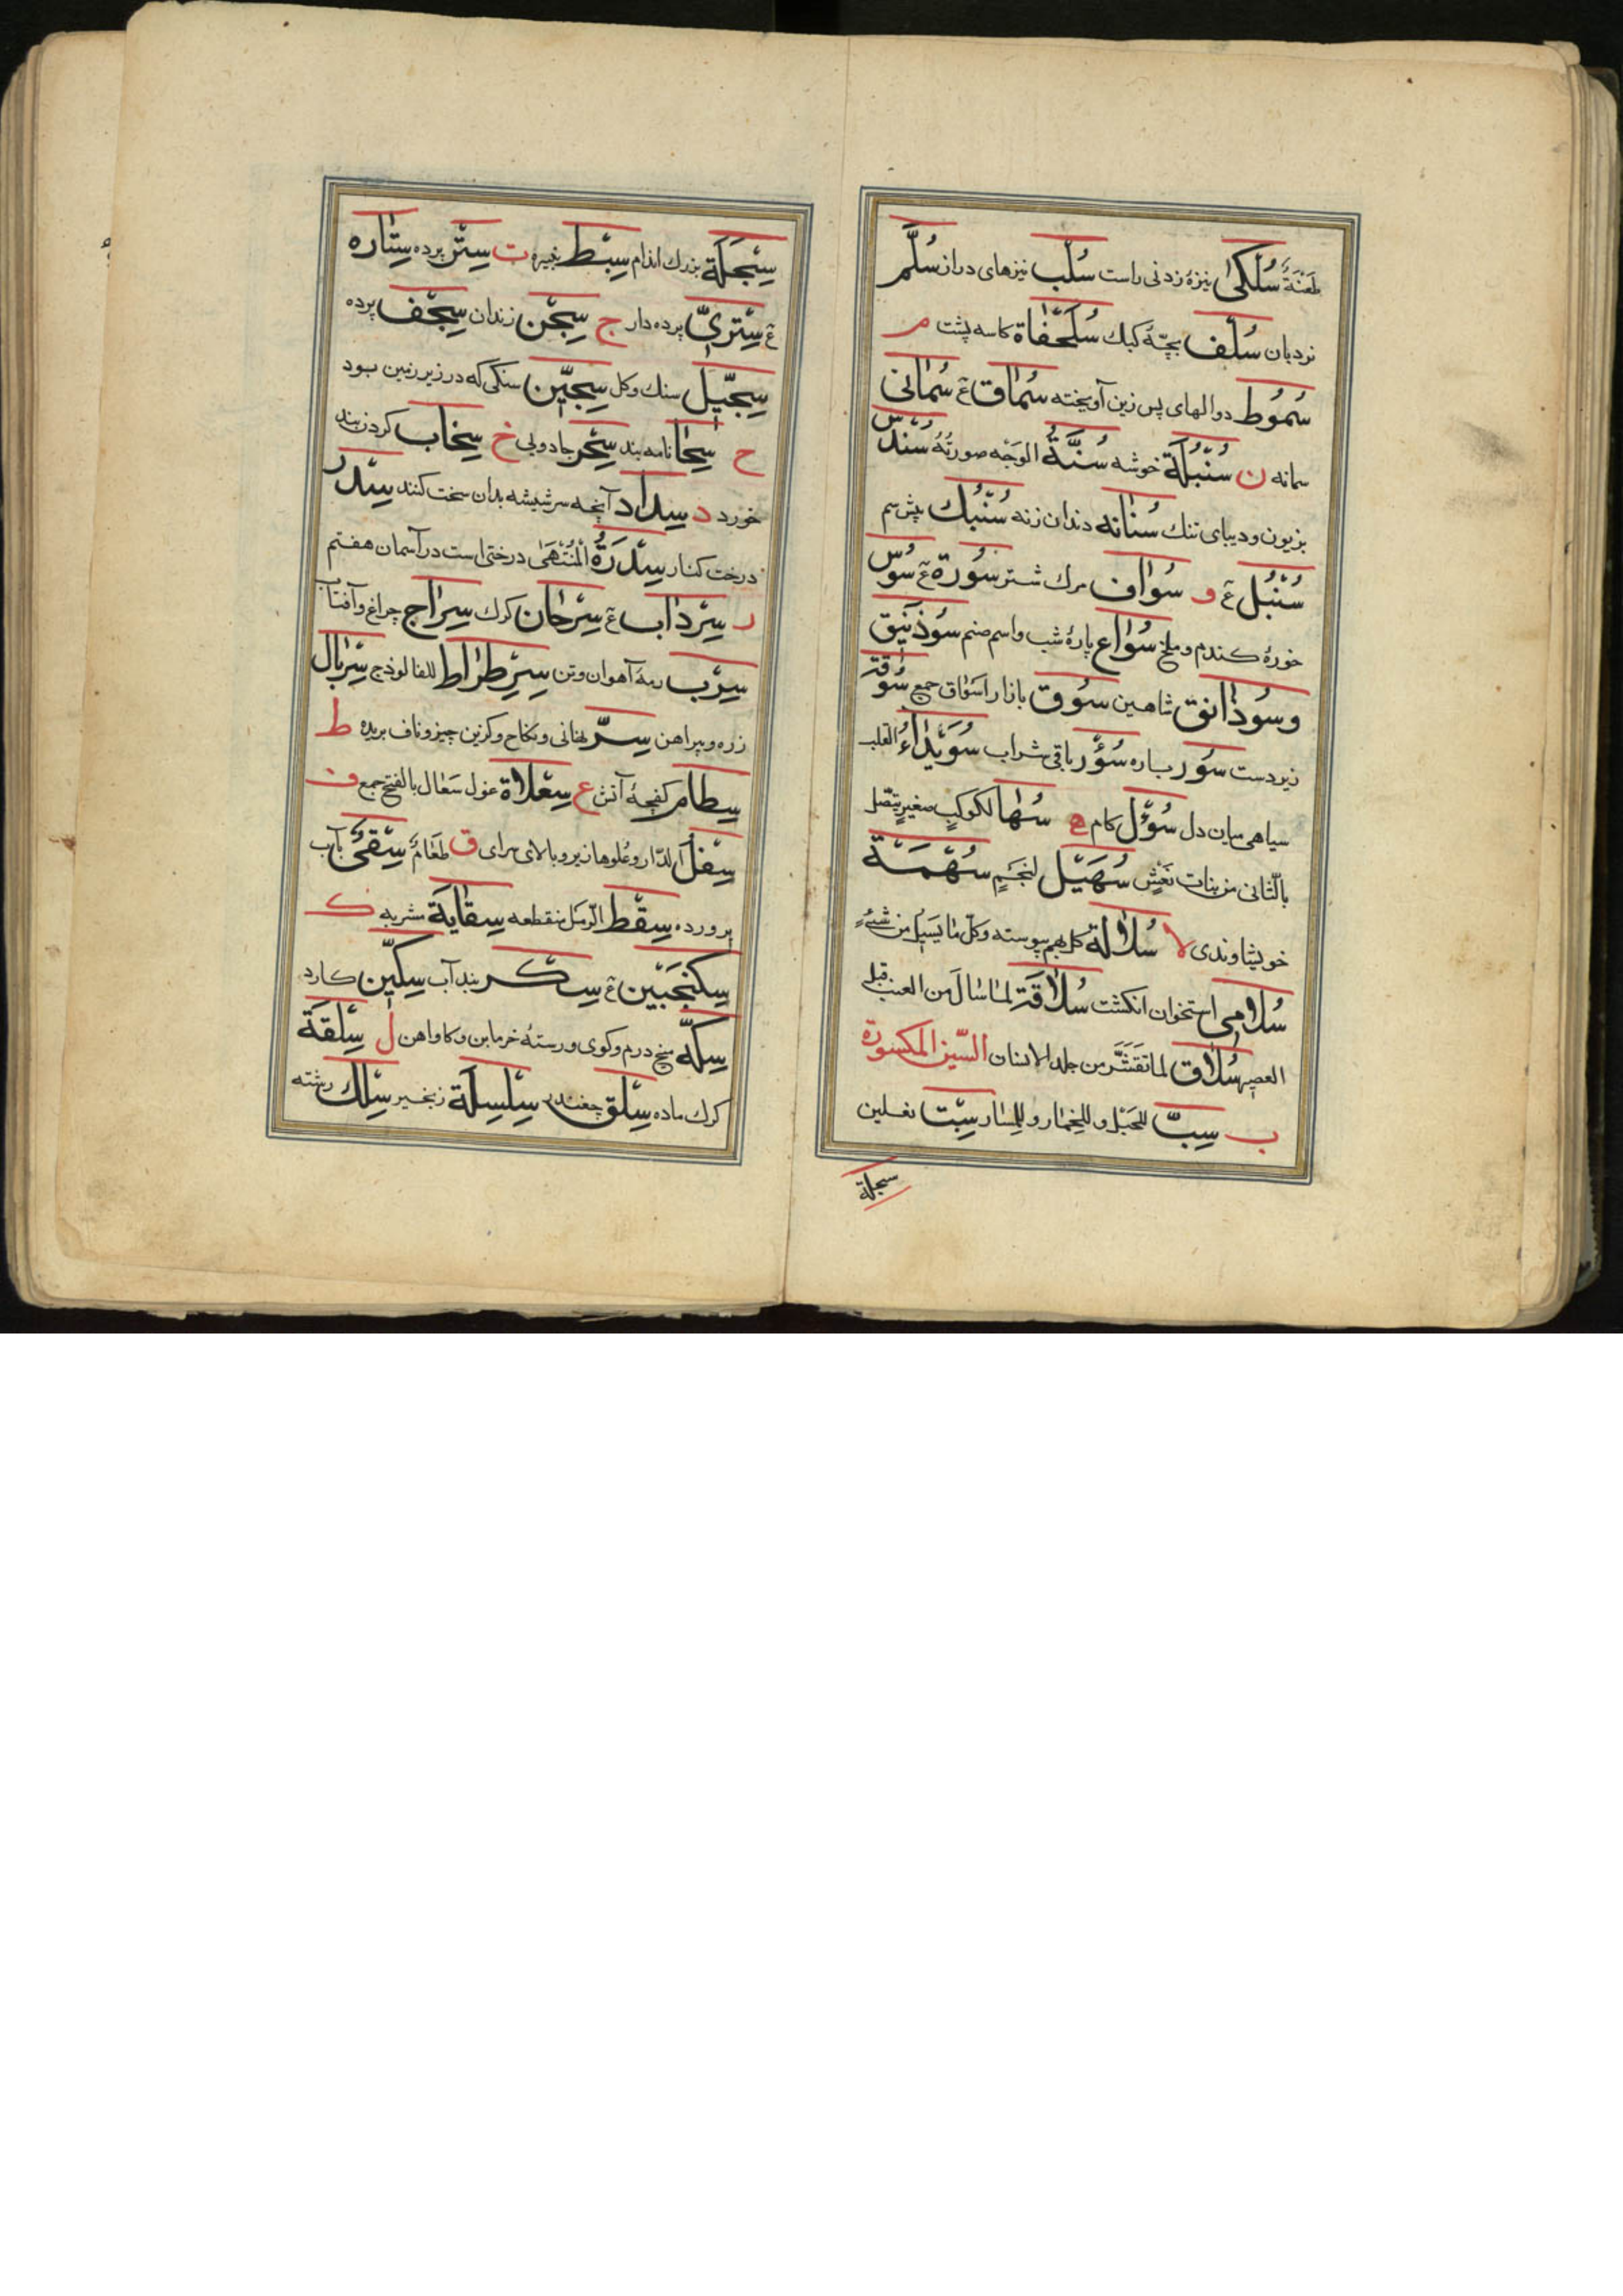 طَعْنَةٌ سُلْكٰی نیزه زدنی راست سُلُب نیزهای دراز سُلَّم
نردبان سُلَف بچّهٔ کبك سُلَحْفٰاة کاسه پشت م
سُمُوط دوالهای پس زین آویخته سُمّاق ع سُمٰانی
سمانه ن سُنْبُلَة خوشه سُنَّةُ الوَجْه صورتُهُ سُنْدُس
بزیون و دیبای تنك سُنٰانه دندان زنه سُنْبُك پیش سم
سُنْبُل ع و سُوٰاف مرك شتر سُورَة ع سُوس
خورهٔ کندم و ملخ سُوٰاع پارهٔ شب و اسم صنم سُوذَنِیق
وسُوذٰانق شاهین سُوق بازار اَسْوٰاق جمع سُوقَة
زیردست سُور باره سُؤْر باقی شراب سُوَیْدٰاءُ القلب
سیاهی میان دل سُؤْل کام ه سُهٰا لکوکبٍ صغیرٍ یتّصل
بالثانی من بنات نَعْشٍ سُهَیْل لنجَمٍ سُهْمَة
خویشاوندی لا سُلٰالَة کل بهم پیوسته وکلّ مٰا یَسیل من شیٔ
سُلٰامی استخوان انکشت سُلٰاقَة لمٰا سٰالَ من العنب قبل
العصر سُلٰاق لما تَقَشَّرَ من جلد الانسان السّین المکسورة
ب سِبّ للحَبْل و للخِمٰار و للسّٰتار سِبْت نعلین
سبحلة
سِبَحْلَة بزرك اندام سِبْط نبیره ت سِتْر پرده سِتٰاره
ع سِتْریّ پرده دار ج سِجْن زندان سِجْف پرده
سِجّیل سنك و کل سِجّین سنکی که در زیر زمین بود
ح سِحٰا نامه بند سِحْر جادویی خ سِخاب کردن بند
خورد د سِداد آنچه سر شیشه بدان سخت کنند سِدْر
درخت کنار سِدْرَةُ الْمُنْتَهٰی درختی است در آسمان هفتم
ر سِرْداب ع سِرْحان کرك سِراج چراغ و آفتاب
سِرْب رمهٔ آهوان و تن سِرِطْراط للفالوذج سِرْبال
زره و پیراهن سِرّ نهانی و نکاح و کزین چیز و ناف بریده ط
سِطام کفچهٔ آتش ع سِعْلاة غول سَعٰال بالفتح جمع ف
سِفْل الدّار و عُلوها زیر و بالای سرای ق طَعٰامٌ سِقْیٌ بآب
پرورده سِقْط الرّمل منقطعه سِقٰایَة مشربه ك
سِکَنْجَبین ع سِکْر بند آب سِکّین کارد
سِکّة میخ درم و کوی و رستهٔ خرمابن و کاواهن ل سِلْقَة
کرك ماده سِلْق چغندر سِلْسِلَة زنجیر سِلْك رشته